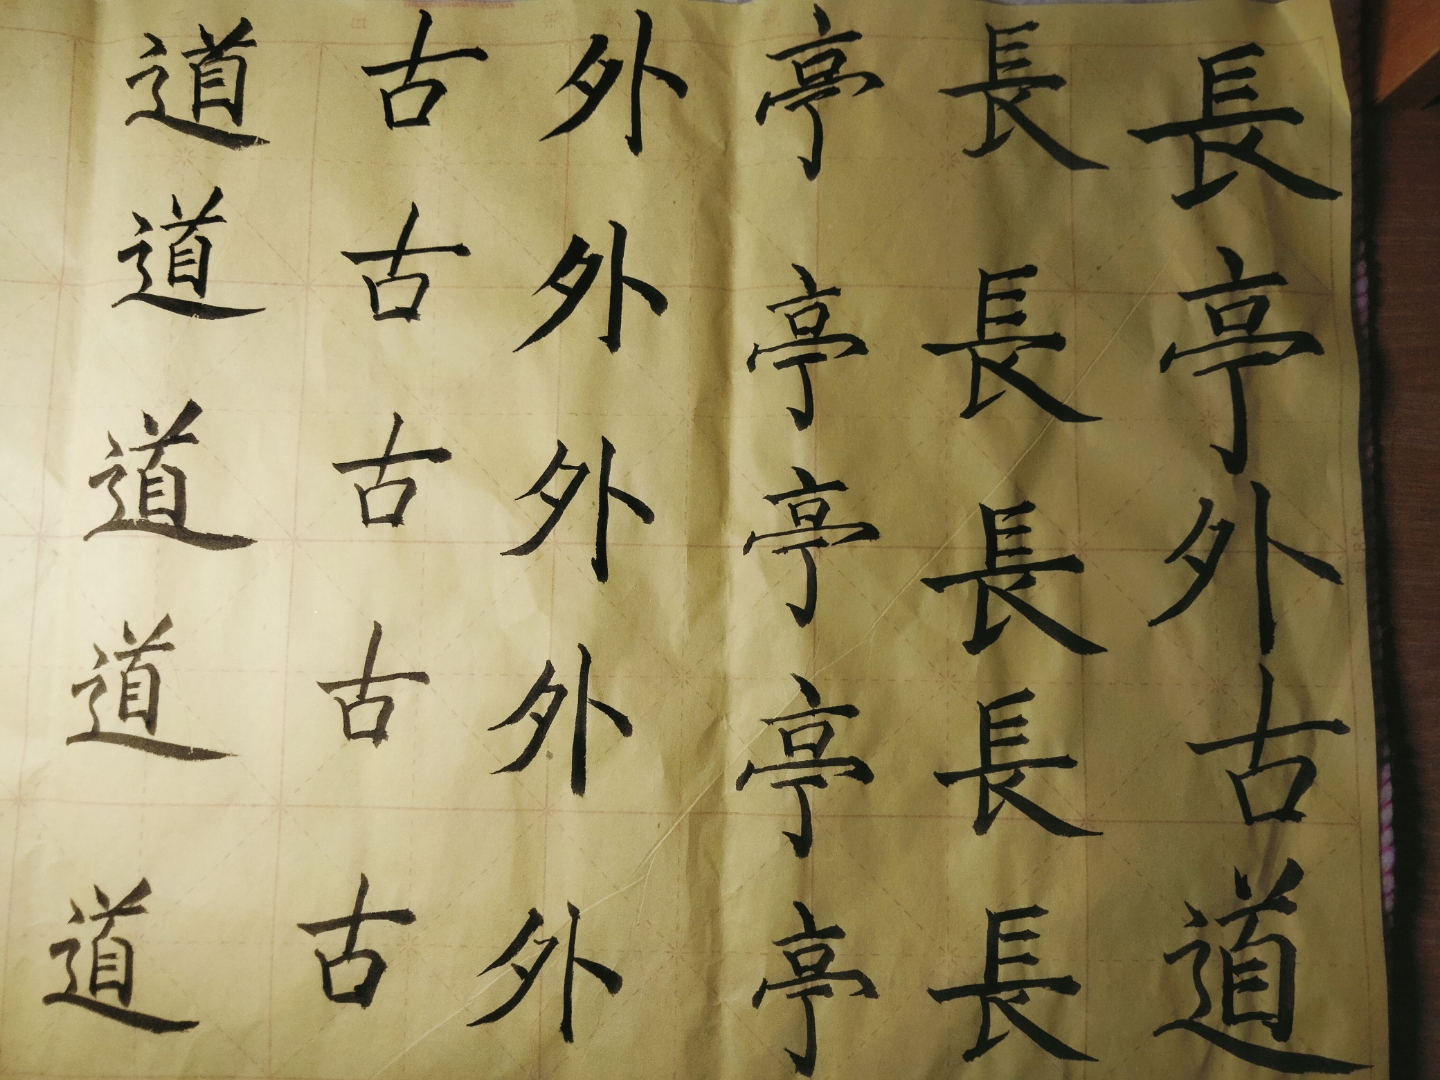 長亭外古道
長長長長長
亭亭亭亭亭
外外外外外
古古古古古
道道道道道